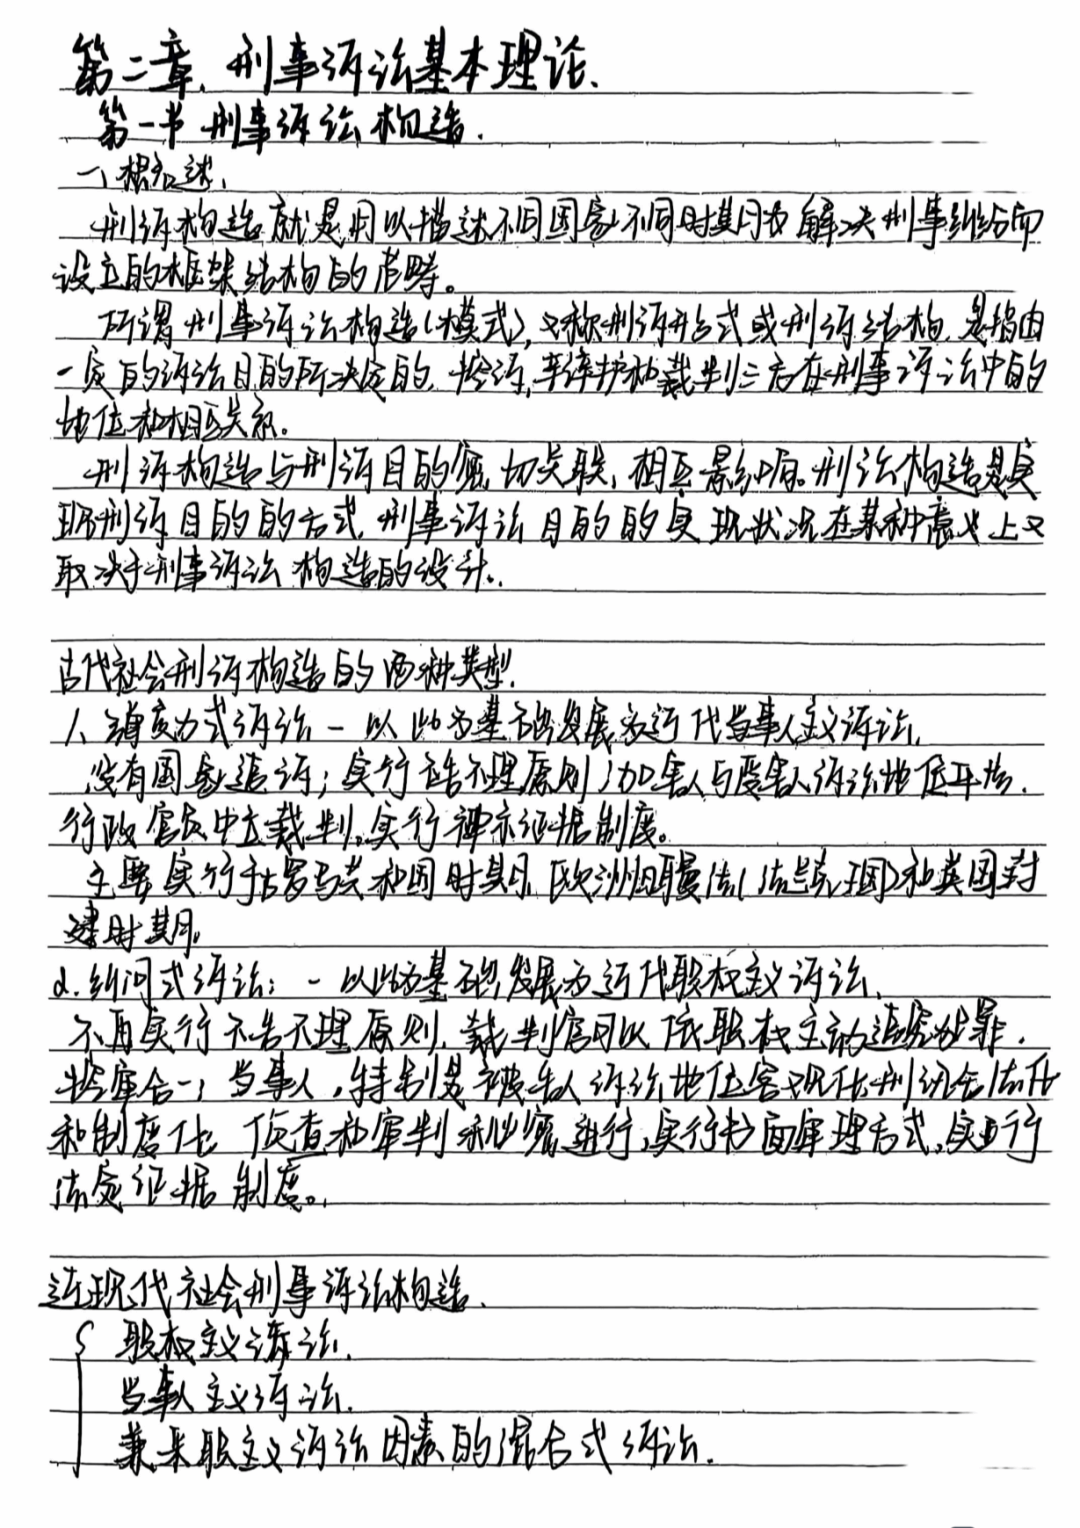 第二章、刑事诉讼基本理论、
第一节 刑事诉讼构造.
一、概述、
刑诉构造就是用以描述不同国家不同时期为解决刑事纠纷而
设立的框架结构的范畴。
所谓刑事诉讼构造(模式),又称刑诉形式或刑诉结构,是指由
一定的诉讼目的所决定的,控诉,辩护和裁判三方在刑事诉讼中的
地位和相互关系。
刑诉构造与刑诉目的密切关联,相互影响。刑诉构造是实
现刑诉目的的方式,刑事诉讼目的的实现状况在某种意义上又
取决于刑事诉讼构造的设计.
古代社会刑诉构造的两种类型.
1、弹劾式诉讼 — 以此为基础发展为近代当事人主义诉讼.
没有国家追诉;实行不告不理原则;加害人与受害人诉讼地位平等.
行政官员中立裁判,实行神示证据制度。
主要实行于古罗马共和国时期、欧洲日耳曼法(法兰克王国)和英国封
建时期。
2.纠问式诉讼: — 以此为基础发展为近代职权主义诉讼.
不再实行不告不理原则,裁判官可以依职权主动追究犯罪.
控审合一;当事人,特别是被告人诉讼地位客观化,刑讯合法化
和制度化 侦查和审判秘密进行,实行书面审理方式,实行
法定证据制度。
近现代社会刑事诉讼构造.
职权主义诉讼.
当事人主义诉讼.
兼采职主义诉讼因素的混合式诉讼.